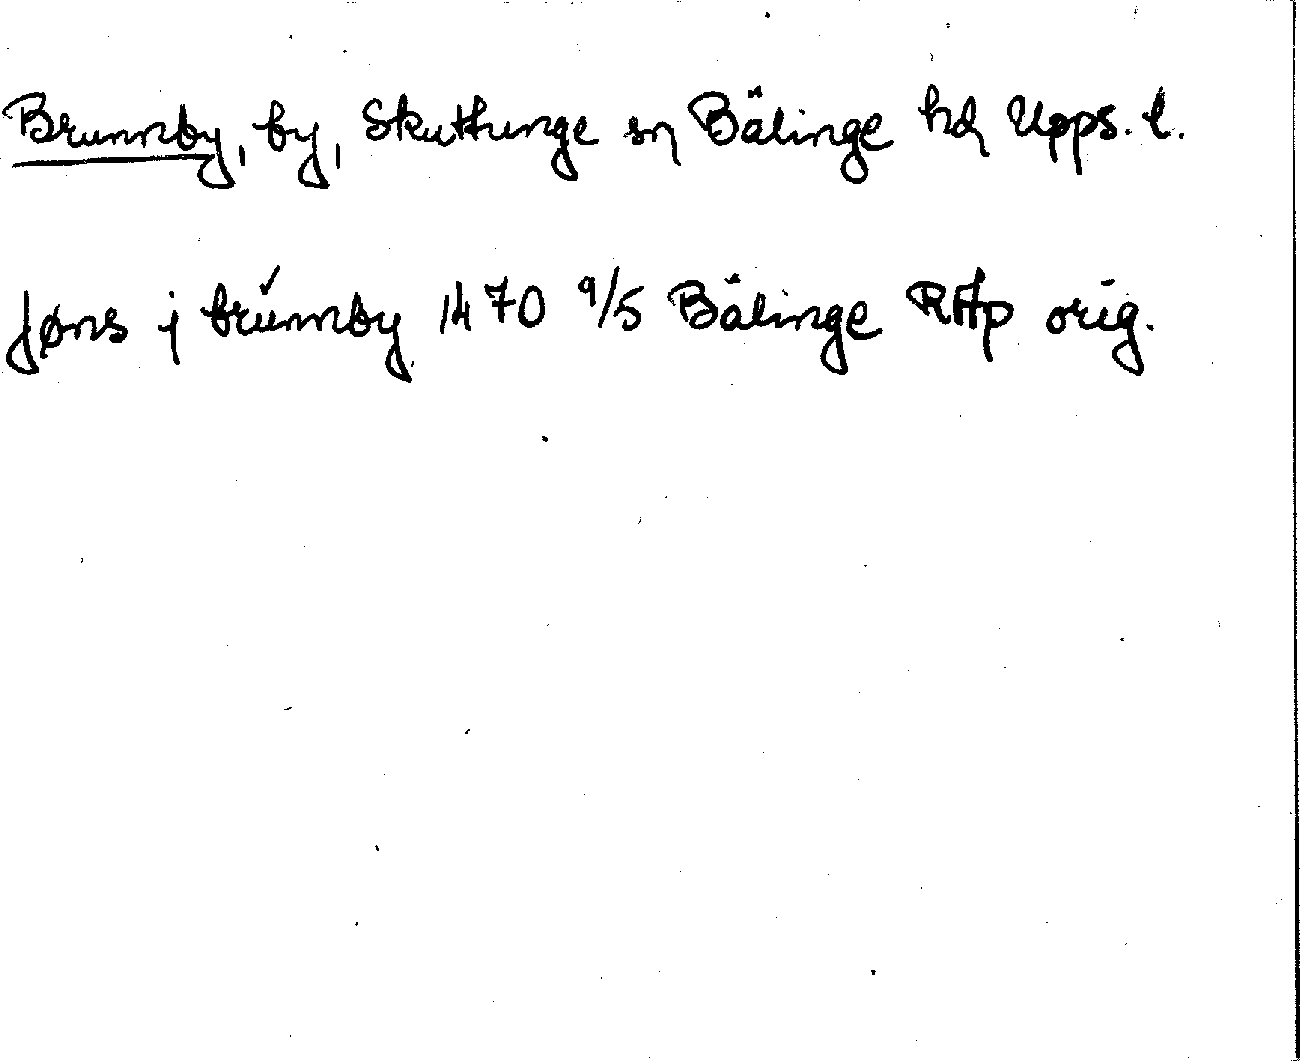 Brunnby, by, Skuttunge sn Bälinge hd Upps. l.
Jøns j brwnnby 1470 9/5 Bälinge RAp orig.